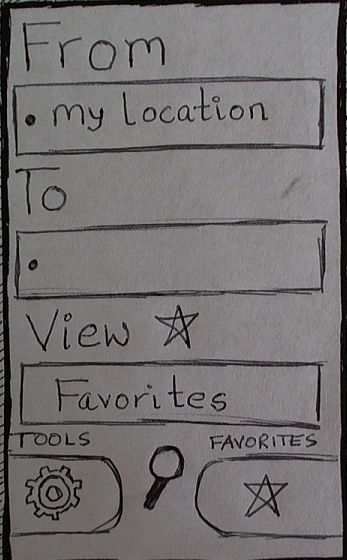 From
my Location
To
View
Favorites
TOOLS
FAVORITES